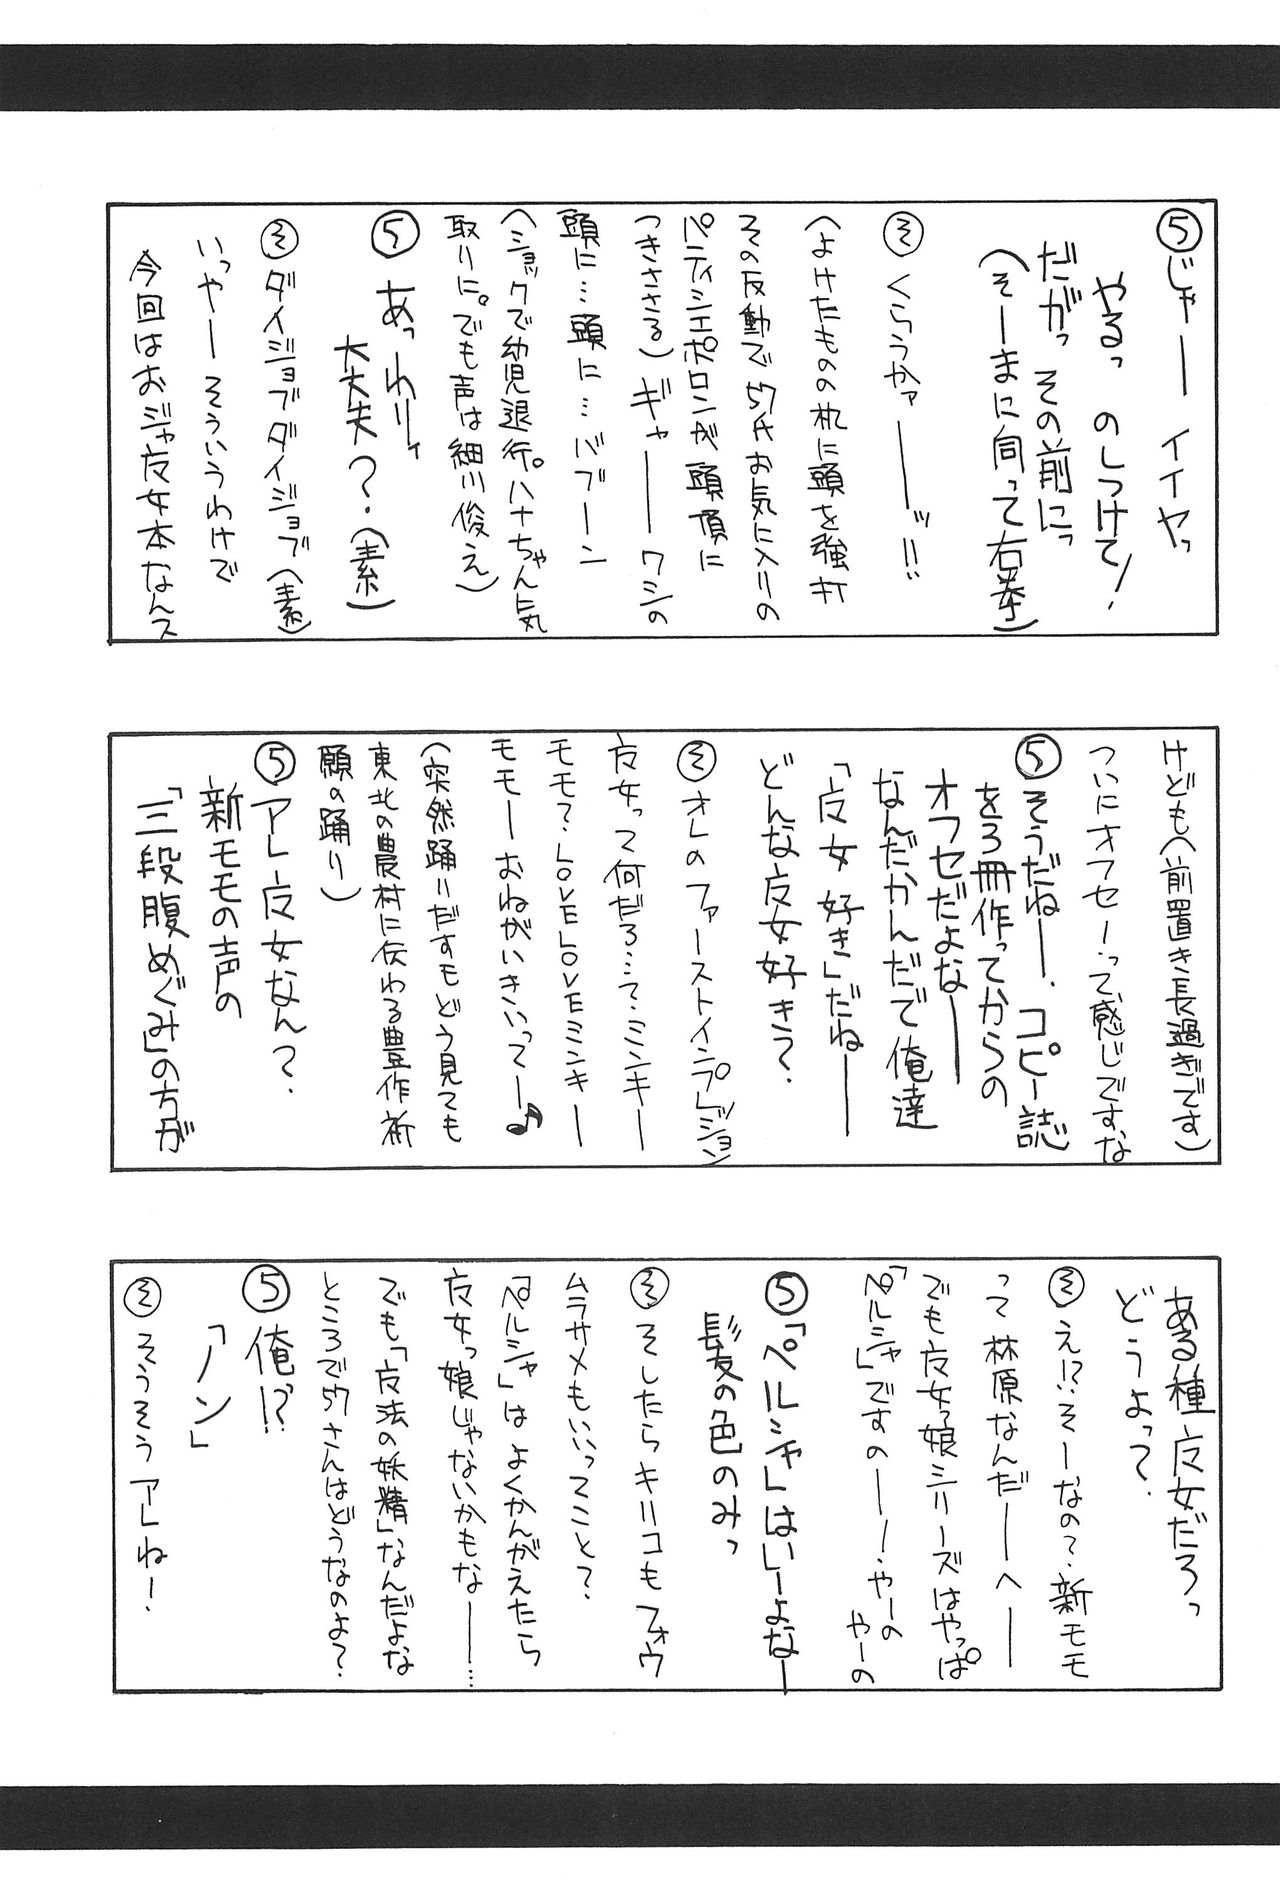 ⑤じゃー イイヤっ
やるっ のしつけて!
だがっ その前にっ
(そーまに向って右拳)
㋞くらうかァーーッ!!
(よけたものの机に頭を強打
その反動で57氏お気に入りの
パティシエポロンが頭頂に
つきささる)ギャーーワシの
頭に…頭に…バブーン
(ショックで幼児退行。ハナちゃん気
取りに。でも声は細川俊之)
⑤あっわりィ
大丈夫?(素)
㋞ダイジョブダイジョブ(素)
いっやーそういうわけで
今回はおジャ魔女本なんス
けども(前置き長過ぎです)
ついにオフセーって感じですな
⑤そうだねー.コピー誌
を3冊作ってからの
オフセだよなー
なんだかんだで俺達
「魔女好き」だねー
どんな魔女好き?
㋞オレのファーストインプレッション
魔女って何だろ…?ミンキー
モモ?LOVELOVEミンキー
モモーおねがいきいってー♪
(突然踊りだすもどう見ても
東北の農村に伝わる豊作祈
願の踊り)
⑤アレ魔女なん?
新モモの声の
「三段腹めぐみ」の方が
ある種魔女だろっ
どうよって?
㋞え!?そーなの?新モモ
って林原なんだーへー
でも魔女っ娘シリーズはやっぱ
「ペルシャ」ですのー!やーの
やーの
⑤「ペルシャ」はいーよなー
髪の色のみっ
㋞そしたらキリコもフォウ
ムラサメもいいってこと?
「ペルシャ」はよくかんがえたら
魔女っ娘じゃないかもなー…
でも「魔法の妖精」なんだよな
ところで57さんはどうなのよ?
⑤俺!?
「ノン」
㋞そうそうアレねー!